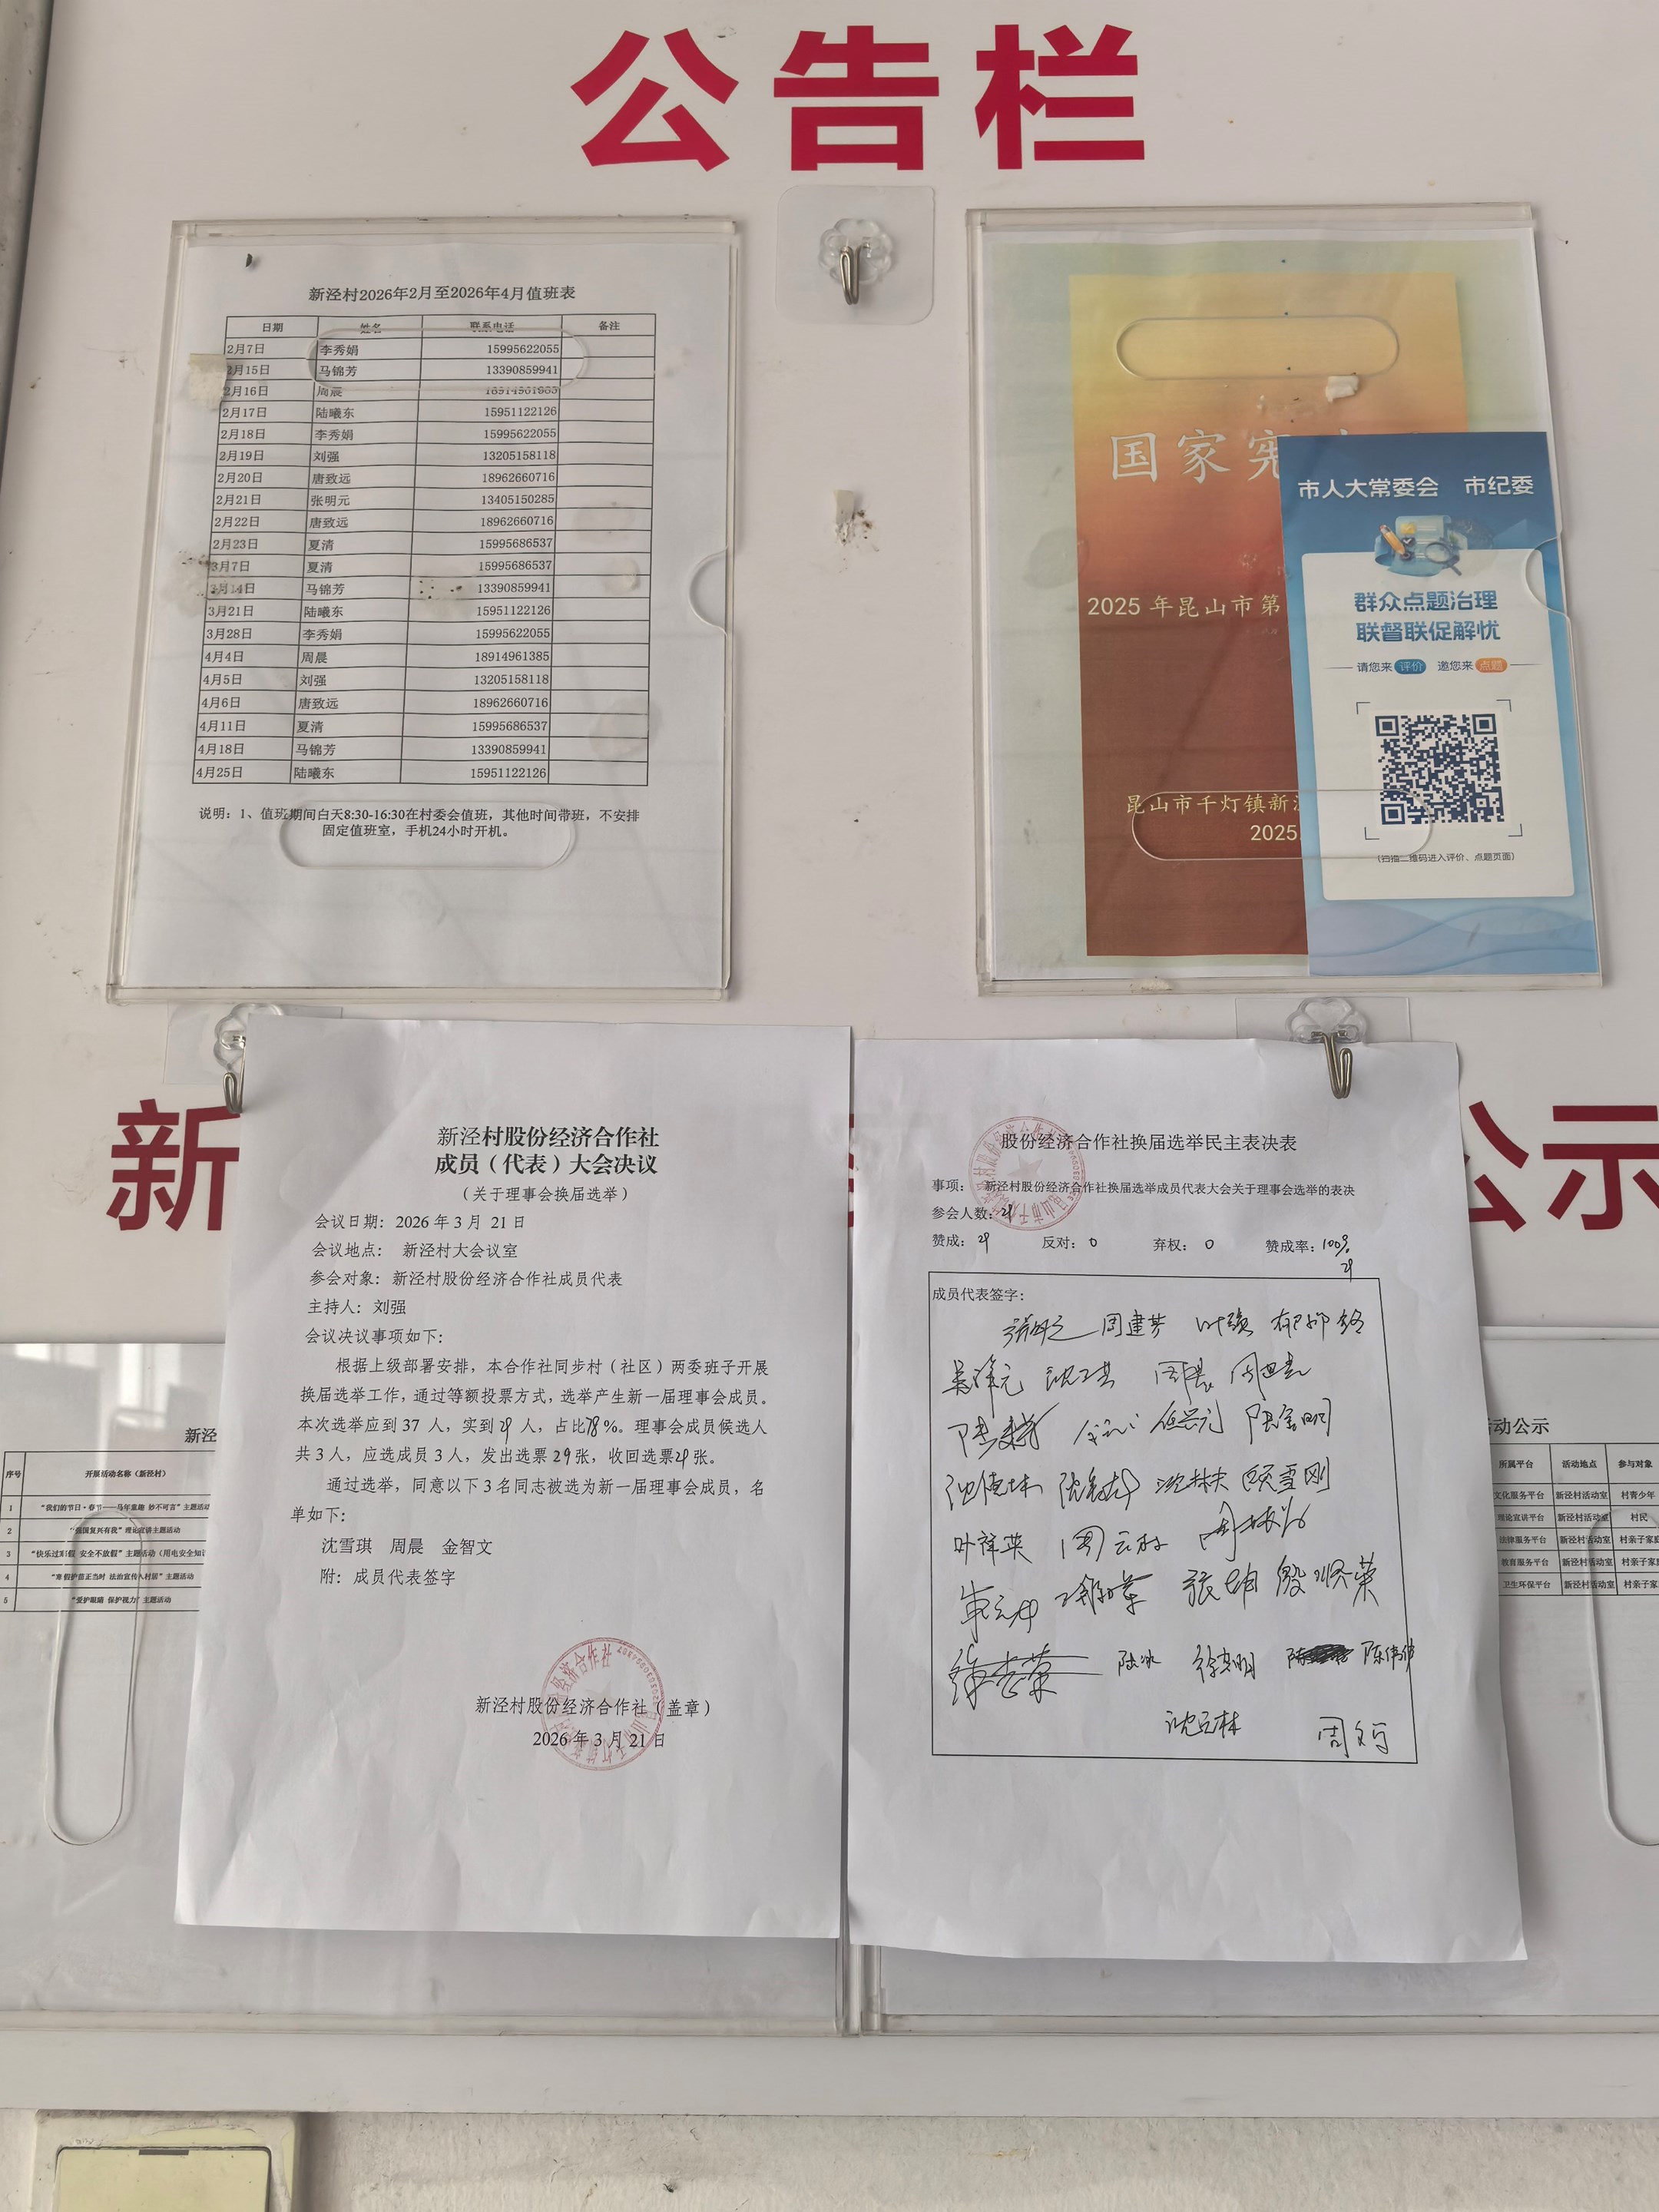 公告栏
新泾村2026年2月至2026年4月值班表
日期 姓名 联系电话 备注
2月7日 李秀娟 15995622055
2月15日 马锦芳 13390859941
2月16日 周晨
2月17日 陆曦东 15951122126
2月18日 李秀娟 15995622055
2月19日 刘强 13205158118
2月20日 唐致远 18962660716
2月21日 张明元 13405150285
2月22日 唐致远 18962660716
2月23日 夏清 15995686537
3月7日 夏清 15995686537
3月14日 马锦芳 13390859941
3月21日 陆曦东 15951122126
3月28日 李秀娟 15995622055
4月4日 周晨 18914961385
4月5日 刘强 13205158118
4月6日 唐致远 18962660716
4月11日 夏清 15995686537
4月18日 马锦芳 13390859941
4月25日 陆曦东 15951122126
说明：1、值班期间白天8:30-16:30在村委会值班，其他时间带班，不安排
固定值班室，手机24小时开机。
国家宪
2025年昆山市第
昆山市千灯镇新泾
2025
市人大常委会 市纪委
群众点题治理
联督联促解忧
请您来 评价 邀您来 点题
(扫描二维码进入评价、点题页面)
新
公示
新泾村股份经济合作社
成员（代表）大会决议
（关于理事会换届选举）
会议日期：2026年3月21日
会议地点： 新泾村大会议室
参会对象：新泾村股份经济合作社成员代表
主持人：刘强
会议决议事项如下：
根据上级部署安排，本合作社同步村（社区）两委班子开展
换届选举工作，通过等额投票方式，选举产生新一届理事会成员。
本次选举应到37人，实到29人，占比78%。理事会成员候选人
共3人，应选成员3人，发出选票29张，收回选票29张。
通过选举，同意以下3名同志被选为新一届理事会成员，名
单如下：
沈雪琪 周晨 金智文
附：成员代表签字
新泾村股份经济合作社（盖章）
2026年3月21日
股份经济合作社换届选举民主表决表
事项： 新泾村股份经济合作社换届选举成员代表大会关于理事会选举的表决
参会人数：29
赞成：29 反对：0 弃权：0 赞成率：100%
29
成员代表签字：
周建芳 叶强
周晨
顾雪刚
叶祥英 周云林
张明 殷顺荣
陆冰 徐志明 陈伟伟
沈云林
新泾
序号 开展活动名称（新泾村）
1 “我们的节日·春节——马年童趣 妙不可言”主题活动
2 “强国复兴有我”理论宣讲主题活动
3 “快乐过寒假 安全不放假”主题活动（用电安全知识
4 “寒假护苗正当时 法治宣传入村居”主题活动
5 “爱护眼睛 保护视力”主题活动
活动公示
所属平台 活动地点 参与对象
文化服务平台 新泾村活动室 村青少年
理论宣讲平台 新泾村活动室 村民
法律服务平台 新泾村活动室 村亲子家庭
教育服务平台 新泾村活动室 村亲子家庭
卫生环保平台 新泾村活动室 村亲子家